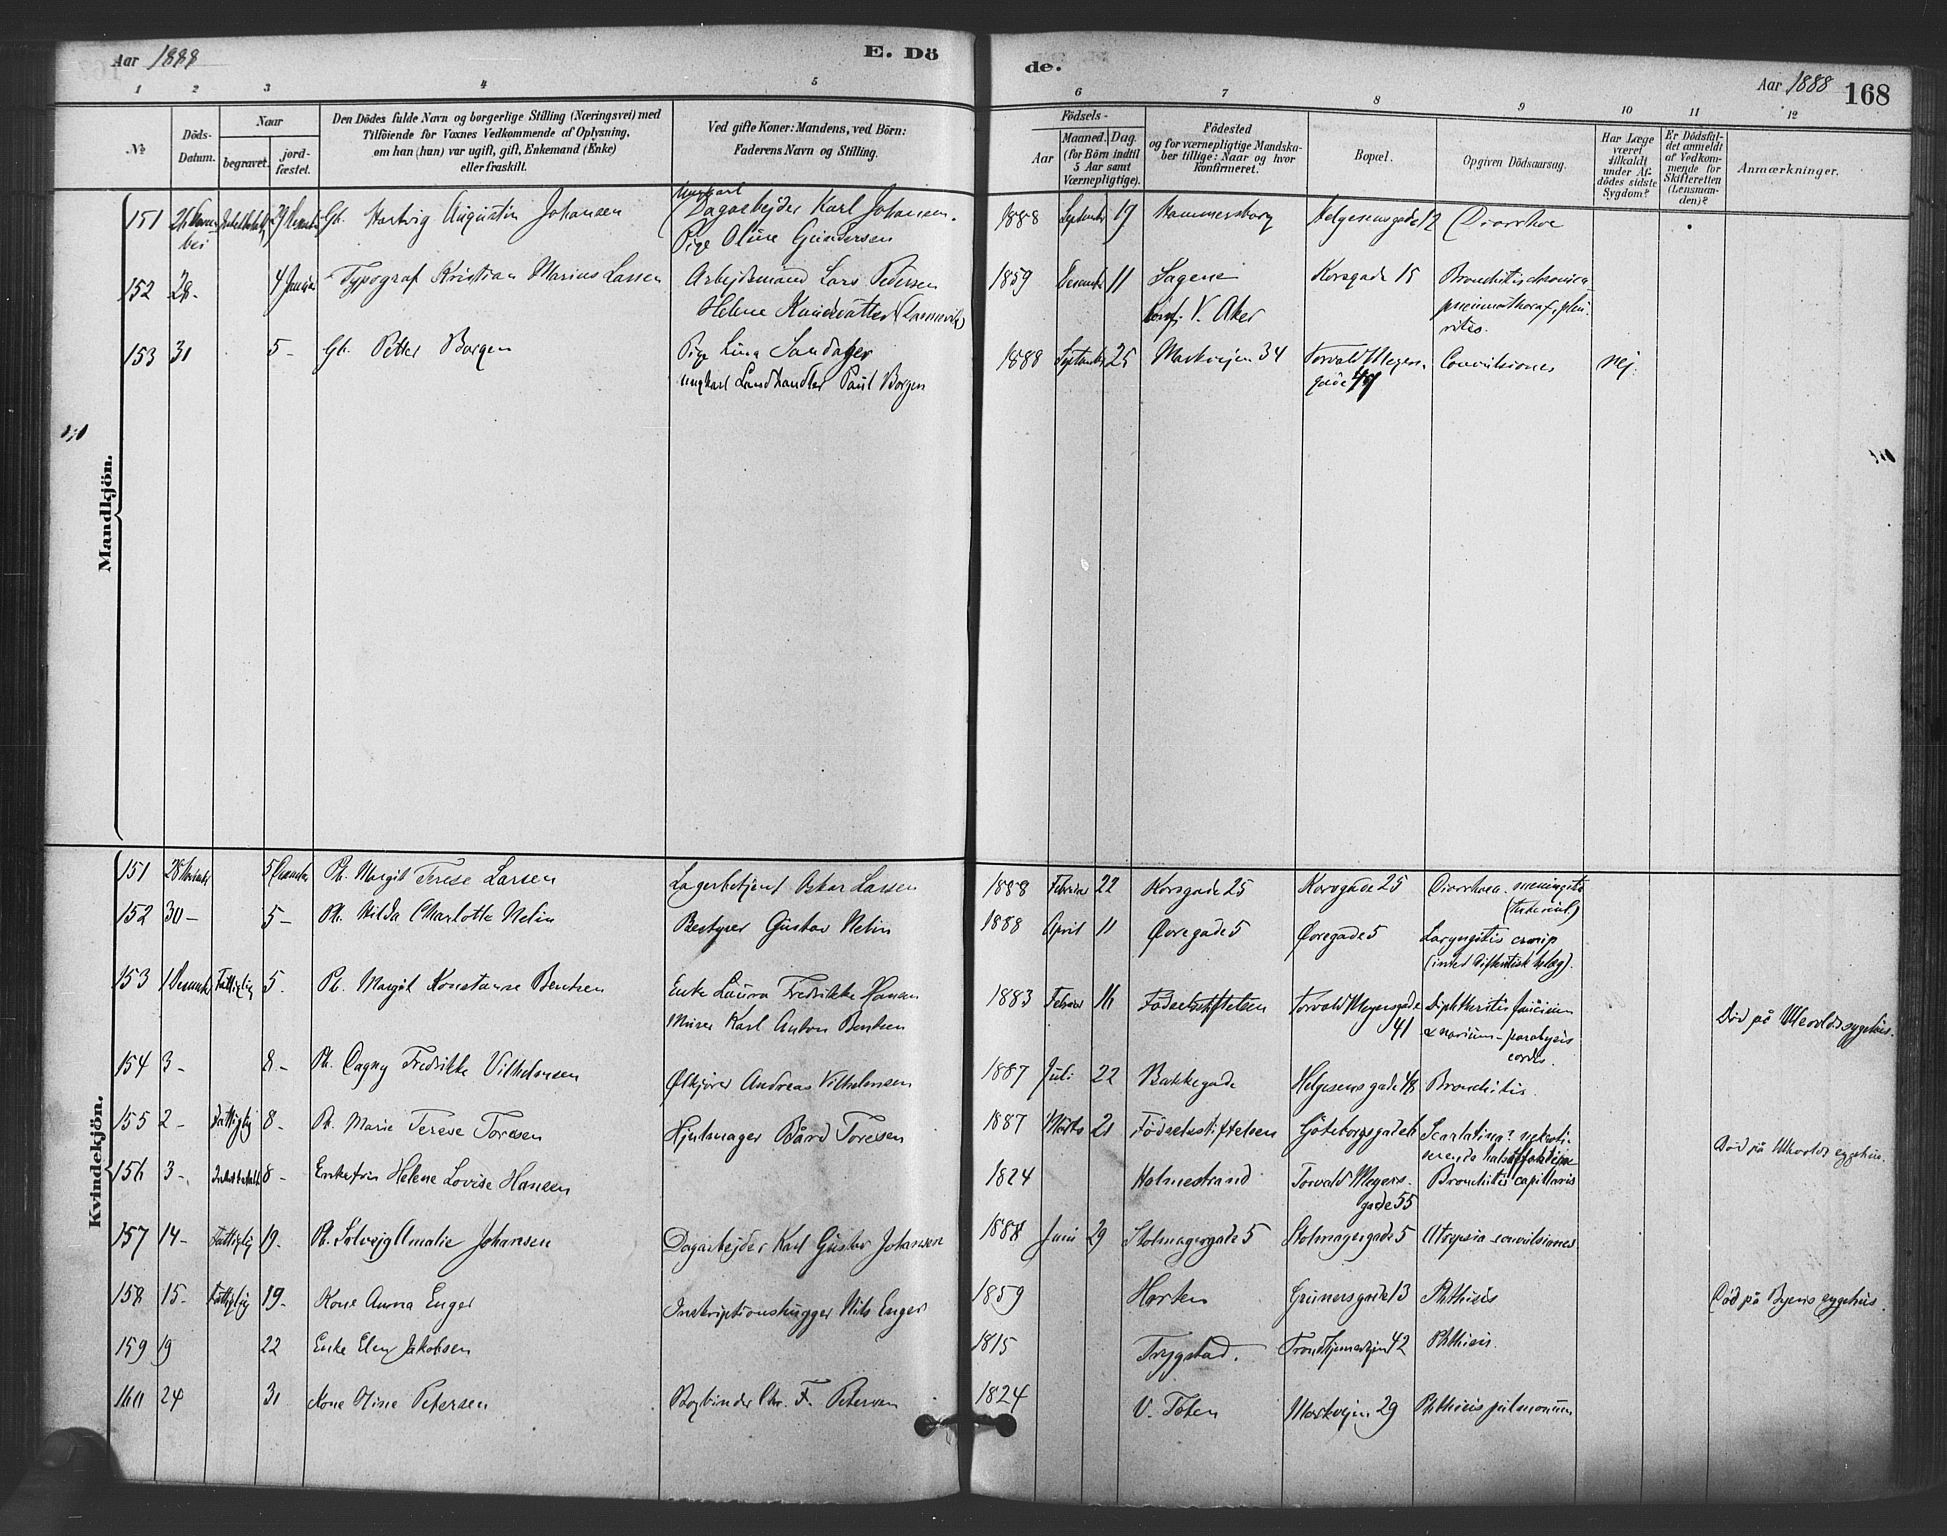 Aar 1888
E. Dö
de.
Aar 1888 168
1 2 3 4 5 6 7 8 9 10 11 12
№
Döds-
Datum.
Naar
begravet.
jord-
fæstet.
Den Dödes fulde Navn og borgerlige Stilling (Næringsvei) med
Tilföiende for Voxnes Vedkommende af Oplysning,
om han (hun) var ugift, gift, Enkemand (Enke)
eller fraskilt.
Ved gifte Koner: Mandens, ved Börn:
Faderens Navn og Stilling.
Födsels-
Aar
Maaned. Dag.
(for Börn indtil
5 Aar samt
Værnepligtige).
Födested
og for værnepligtige Mandska-
ber tillige: Naar og hvor
Konfirmeret.
Bopæl.
Opgiven Dödsaarsag.
Har Læge
været
tilkaldt
under Af-
dödes sidste
Sygdom?
Er Dödsfal-
det anmeldt
af Vedkom-
mende for
Skifteretten
(Lensman-
den)?
Anmærkninger.
Mandkjön.
Ungkarl
151 29 Gb. Hartvig Augustin Johansen Dagarbejder Karl Johansen. 1888 September 19 Hammersborg Helgesensgade 12 Diarrhoe
Pige Oline Gundersen
152 28- 4 Januar Typograf Kristian Marius Larsen Arbejdsmand Lars Pedersen 1859 December 11 Sagene Korsgade 15 Bronchitis chronica
Helene V. Aker pneumothorax, pleu-
ritis.
153 31 5- Gb. Petter Borgen Pige Lina 1888 September 25 Markvejen 34 Torvald Meyers- Convulsiones nej.
ungkarl Landhandler Paul Borgen gade
Kvindekjön.
151 28 5 December Pb. Margit Terese Larsen Lagerbetjent Oskar Larsen 1888 Februar 22 Korsgade 25 Korsgade 25 Diarrhoea. meningitis
152 30- 5- Pb. Hilda Charlotte Nelin Bestyrer Gustav Nelin 1888 April 11 Øvregade 5 Øvregade 5 Laryngitis croup
(intet difteritisk belæg).
153 1 December Fattiglig 5. Pb. Margit Konstanse Bentsen Enke Laura Fredrikke Hansen 1883 Februar 16 Fødselsstiftelsen Torvald Meyersgade Diphtheritis faucium
Murer Karl Anton Bentsen 41 & narium - paralysis
cordis. Død på Ullevolds sygehus.
154 3- 8- Pb. Dagny Fredrikke Vilhelmsen Ølkjører Andreas Vilhelmsen 1887 Juli 22 Bakkegade Helgesensgade 48 Bronchitis.
155 2- Fattiglig 8- Pb. Marie Terese Toresen Hjulmager Bård Toresen 1887 Marts 21 Fødselsstiftelsen Göteborgsgade Scarlatina? nekroti-
serende Død på Ullevolds sygehus.
156 3-. 8- Enkefru Helene Lovise Hansen 1824 Holmestrand Torvald Meyers- Bronchitis capillaris
gade 55
157 14- Fattiglig 19- Pb. Solveig Amalie Johansen Dagarbejder Karl Gustav Johansen 1888 Juni 29 Stolmagergade 5 Stolmagergade 5 Atrepsia - convulsiones
158 15- Fattiglig 19- Kone Anna Enger Inskriptionshugger Nils Enger 1859 Horten Grünersgade 13 Phthisis Død på Byens sygehus.
159 19 22 Enke Elen Jakobsen 1815 Trygstad. Trondhjemsvejen 42 Phthisis.
160 24 31 Kone Stine Petersen Bogbinder Chr. F. Petersen 1824 V. Toten Markvejen 29 Phthisis pulmonum